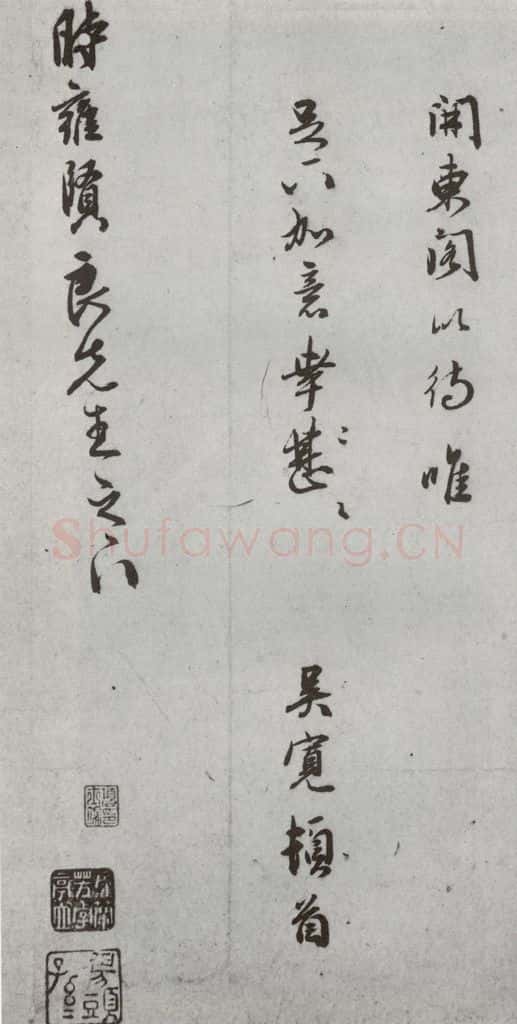 開東閣以待唯
足下加意幸甚〻〻
吳寬頓首
時雍賢良先生之下
Shufawang.CN